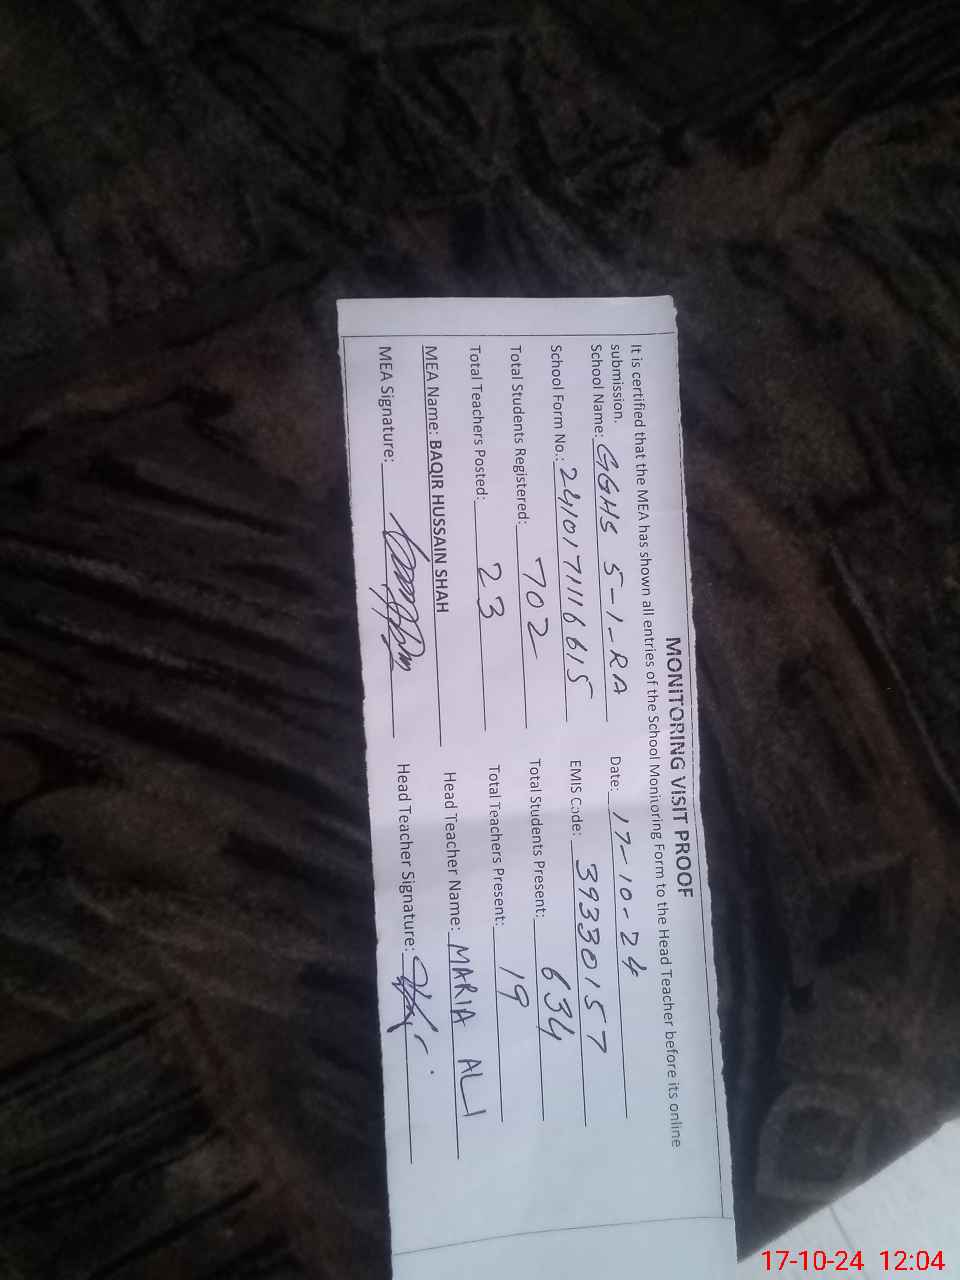 MONITORING VISIT PROOF
It is certified that the MEA has shown all entries of the School Monitoring Form to the Head Teacher before its online
submission.
School Name: GGHS 5-1-RA Date: 17-10-24
School Form No.: 24101711166615 EMIS Code: 39330157
Total Students Registered: 702 Total Students Present: 634
Total Teachers Posted: 23 Total Teachers Present: 19
MEA Name: BAQIR HUSSAIN SHAH Head Teacher Name: MARIA ALI
MEA Signature: Head Teacher Signature:
17-10-24 12:04